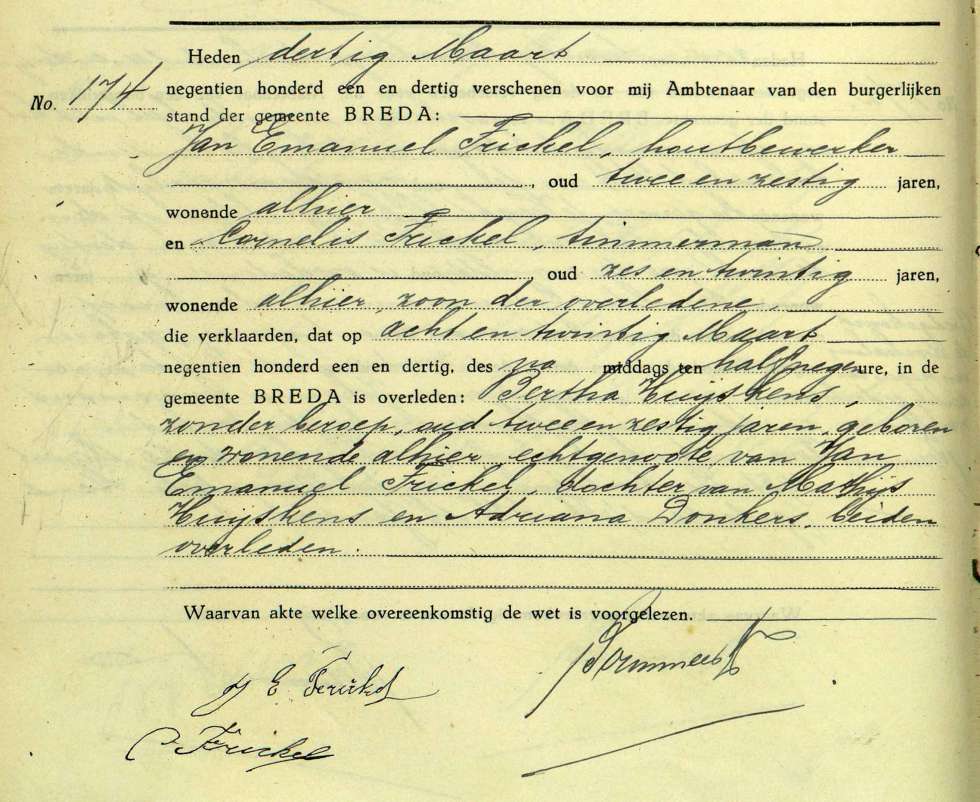 Heden dertig Maart
No. 174. negentien honderd een en dertig verschenen voor mij Ambtenaar van den burgerlijken
stand der gemeente BREDA:
Jan Emanuel Frickel, houtbewerker
, oud twee en zestig jaren,
wonende alhier
en Cornelis Frickel, timmerman
, oud zes en twintig jaren,
wonende alhier, zoon der overledene,
die verklaarden, dat op acht en twintig Maart
negentien honderd een en dertig, des na middags ten half negen ure, in de
gemeente BREDA is overleden: Bertha Huijskens,
zonder beroep, oud twee en zestig jaren, geboren
en wonende alhier, echtgenoote van Jan
Emanuel Frickel, dochter van Mathijs
Huijskens en Adriana Donkers, beiden
overleden.
Waarvan akte welke overeenkomstig de wet is voorgelezen.
J E Frickel
C Frickel